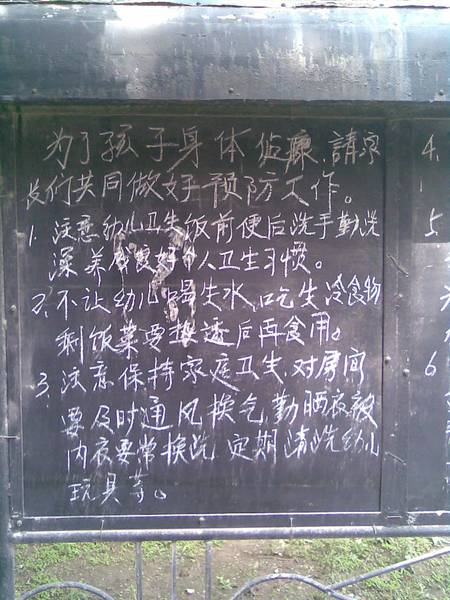 为了孩子身体健康,請家
长们共同做好预防工作。
1. 注意幼儿卫生饭前便后洗手勤洗
澡养成良好个人卫生习惯。
2. 不让幼儿喝生水,吃生冷食物
剩饭菜要热透后再食用。
3. 注意保持家庭卫生,对房间
要及时通风换气,勤晒衣被
内衣要常换洗,定期清洗幼儿
玩具等。
4.
5
6